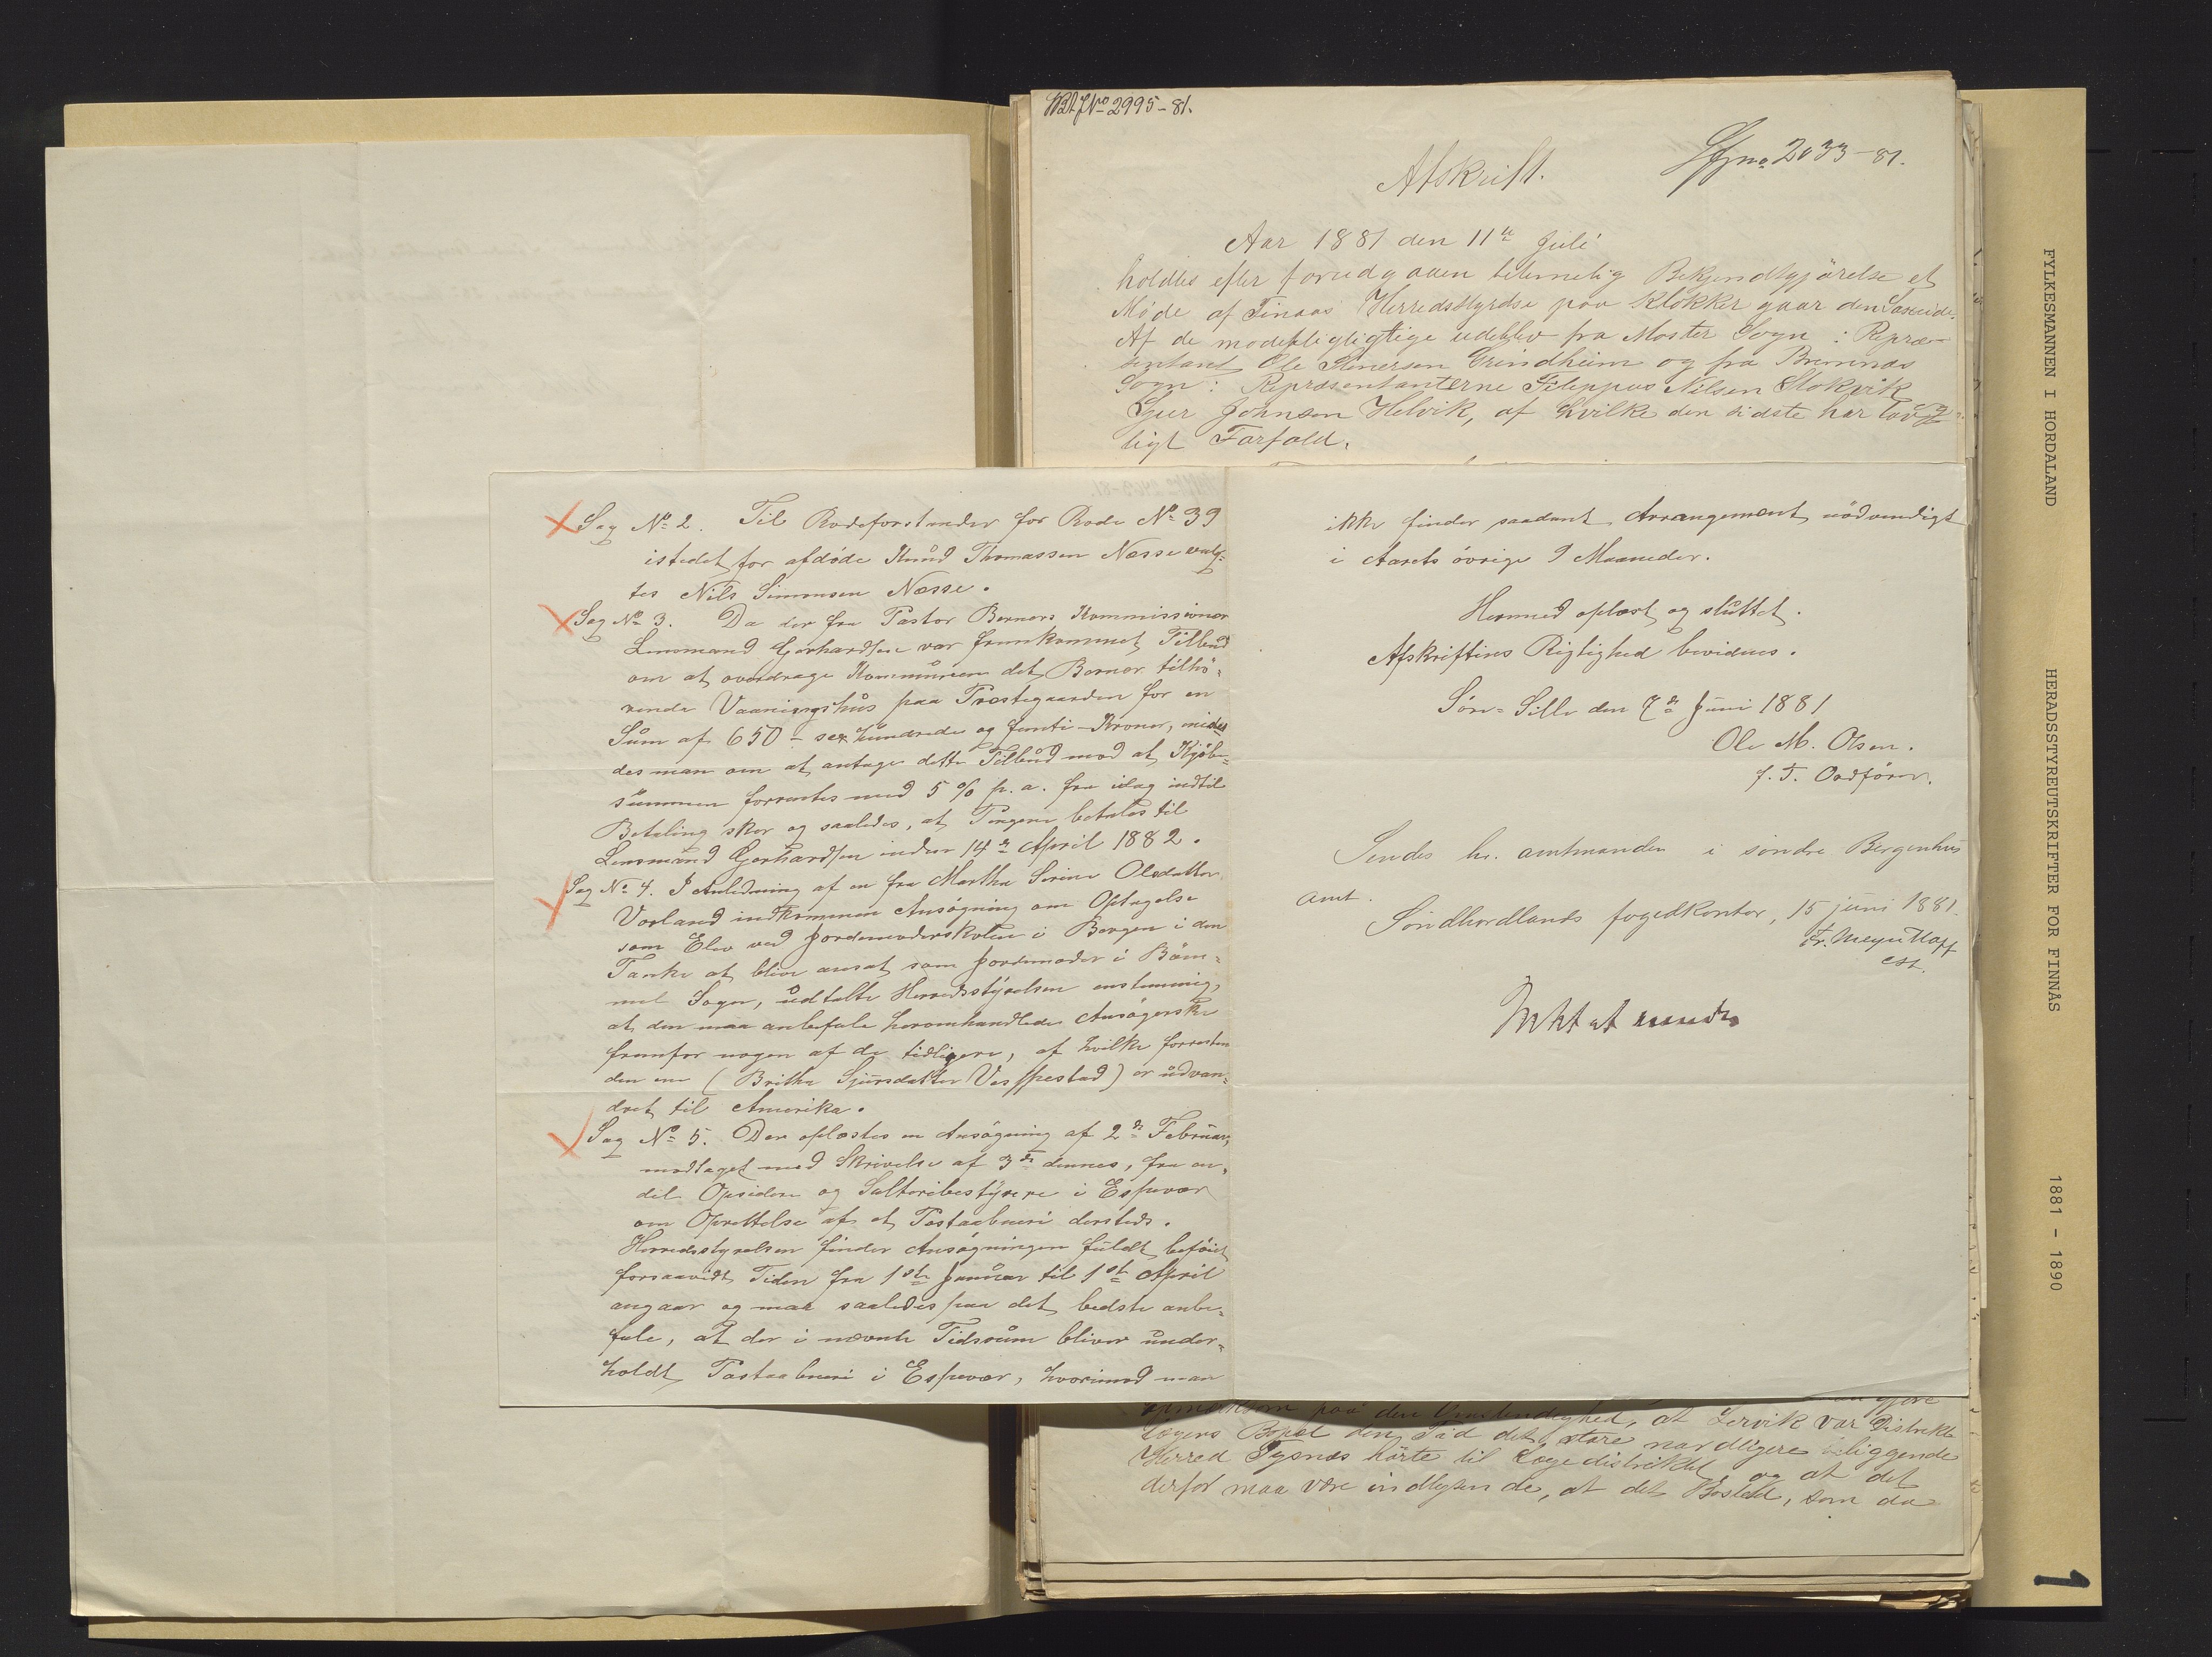 WBA JNo 2995-81.
Sfjno 2033-81.
Afskrift.
Aar 1881 den 11te Juli
holdtes efter forudgaaen betimelig Bekjendtgjörelse et
Møde af Finaas Herredsstyrelse paa Klokkergaarden Saxeide.
Af de modepligligtige udeblev fra Moster Sogn: Repræ-
sentant Ole Stenersen Grindheim og fra Bremnæs
Sogn: Repræsentanterne Filippus Nilsen Stokvik
Sjur Johnsen Helvik, af hvilke den sidste har lovg-
ligt Forfald.
Sag No 2. Til Rodeforstander for Rode No 39
istedet for afdøde Knud Thomassen Næsse valg-
tes Nils Simonsen Næsse.
Sag No 3. Da der fra Pastor Berners Kommissionær
Lensmand Gerhardsen var fremkommet Tilbud
om at overdrage Kommunen det Berner tilhö-
rende Vaaningshus paa Præstegaarden for en
Sum af 650 - sex hundrede og femti - Kroner, enedes
des man om at antage dette Tilbud mod at Kjöbe-
summen forrentes med 5 % p. a. fra idag indtil
Betaling sker og saaledes, at Pengene betales til
Lensmand Gerhardsen inden 14de April 1882.
Sag No 4. I Anledning af en fra Martha Serine Olsdatter
Vorland indkommen Ansögning om Optagelse
som Elev ved Jordemoderskolen i Bergen i den
Tanke at blive ansat som Jordemoder i Böm-
mel Sogn, udtalte Herredsstyrelsen enstemmig,
at den maa anbefale heromhandlede Ansögerske
fremfor nogen af de tidligere, af hvilke forresten
den ene (Britha Sjursdatter Vespestad) er udvan-
dret til Amerika.
Sag No 5. Der oplæstes en Ansögning af 2den Februar,
modtaget med Skrivelse af 3de dennes, fra en
del Opsidere og Salteribestyrere i Espevær
om Oprettelse af et Postaabneri dersteds.
Herredsstyrelsen finder Ansögningen fuldt beföiet
forsaavidt Tiden fra 1ste Januar til 1ste April
angaar og maa saaledes paa det bedste anbe-
fale, at der i nævnte Tidsrum bliver under-
holdt Postaabneri i Espevær, hvorimod man
ikke finder saadant Arrangement nödvendigt
i Aarets övrige 9 Maaneder.
Hermed oplæst og sluttet.
Afskriftens Rigtighed bevidnes.
Söre-Sille den 7de Juni 1881
Ole M. Olsen.
f. T. Ordförer.
Sendes hr. amtmanden i söndre Bergenhus
amt.
Söndhordlands fogedkontor, 15 juni 1881.
Fr. Meyer Hoff
cst.
opmærksom paa den Omstendighed, at Lervik var Distrikts
lægens Bopæl den Tid det store nordligere beliggende
Herred Tysnæs hörte til Lægedistriktet og at det
derfor maa være indlysende, at det Bosted, som da
FYLKESMANNEN I HORDALAND
HERADSSTYREUTSKRIFTER FOR FINNÅS
1881 - 1890
1